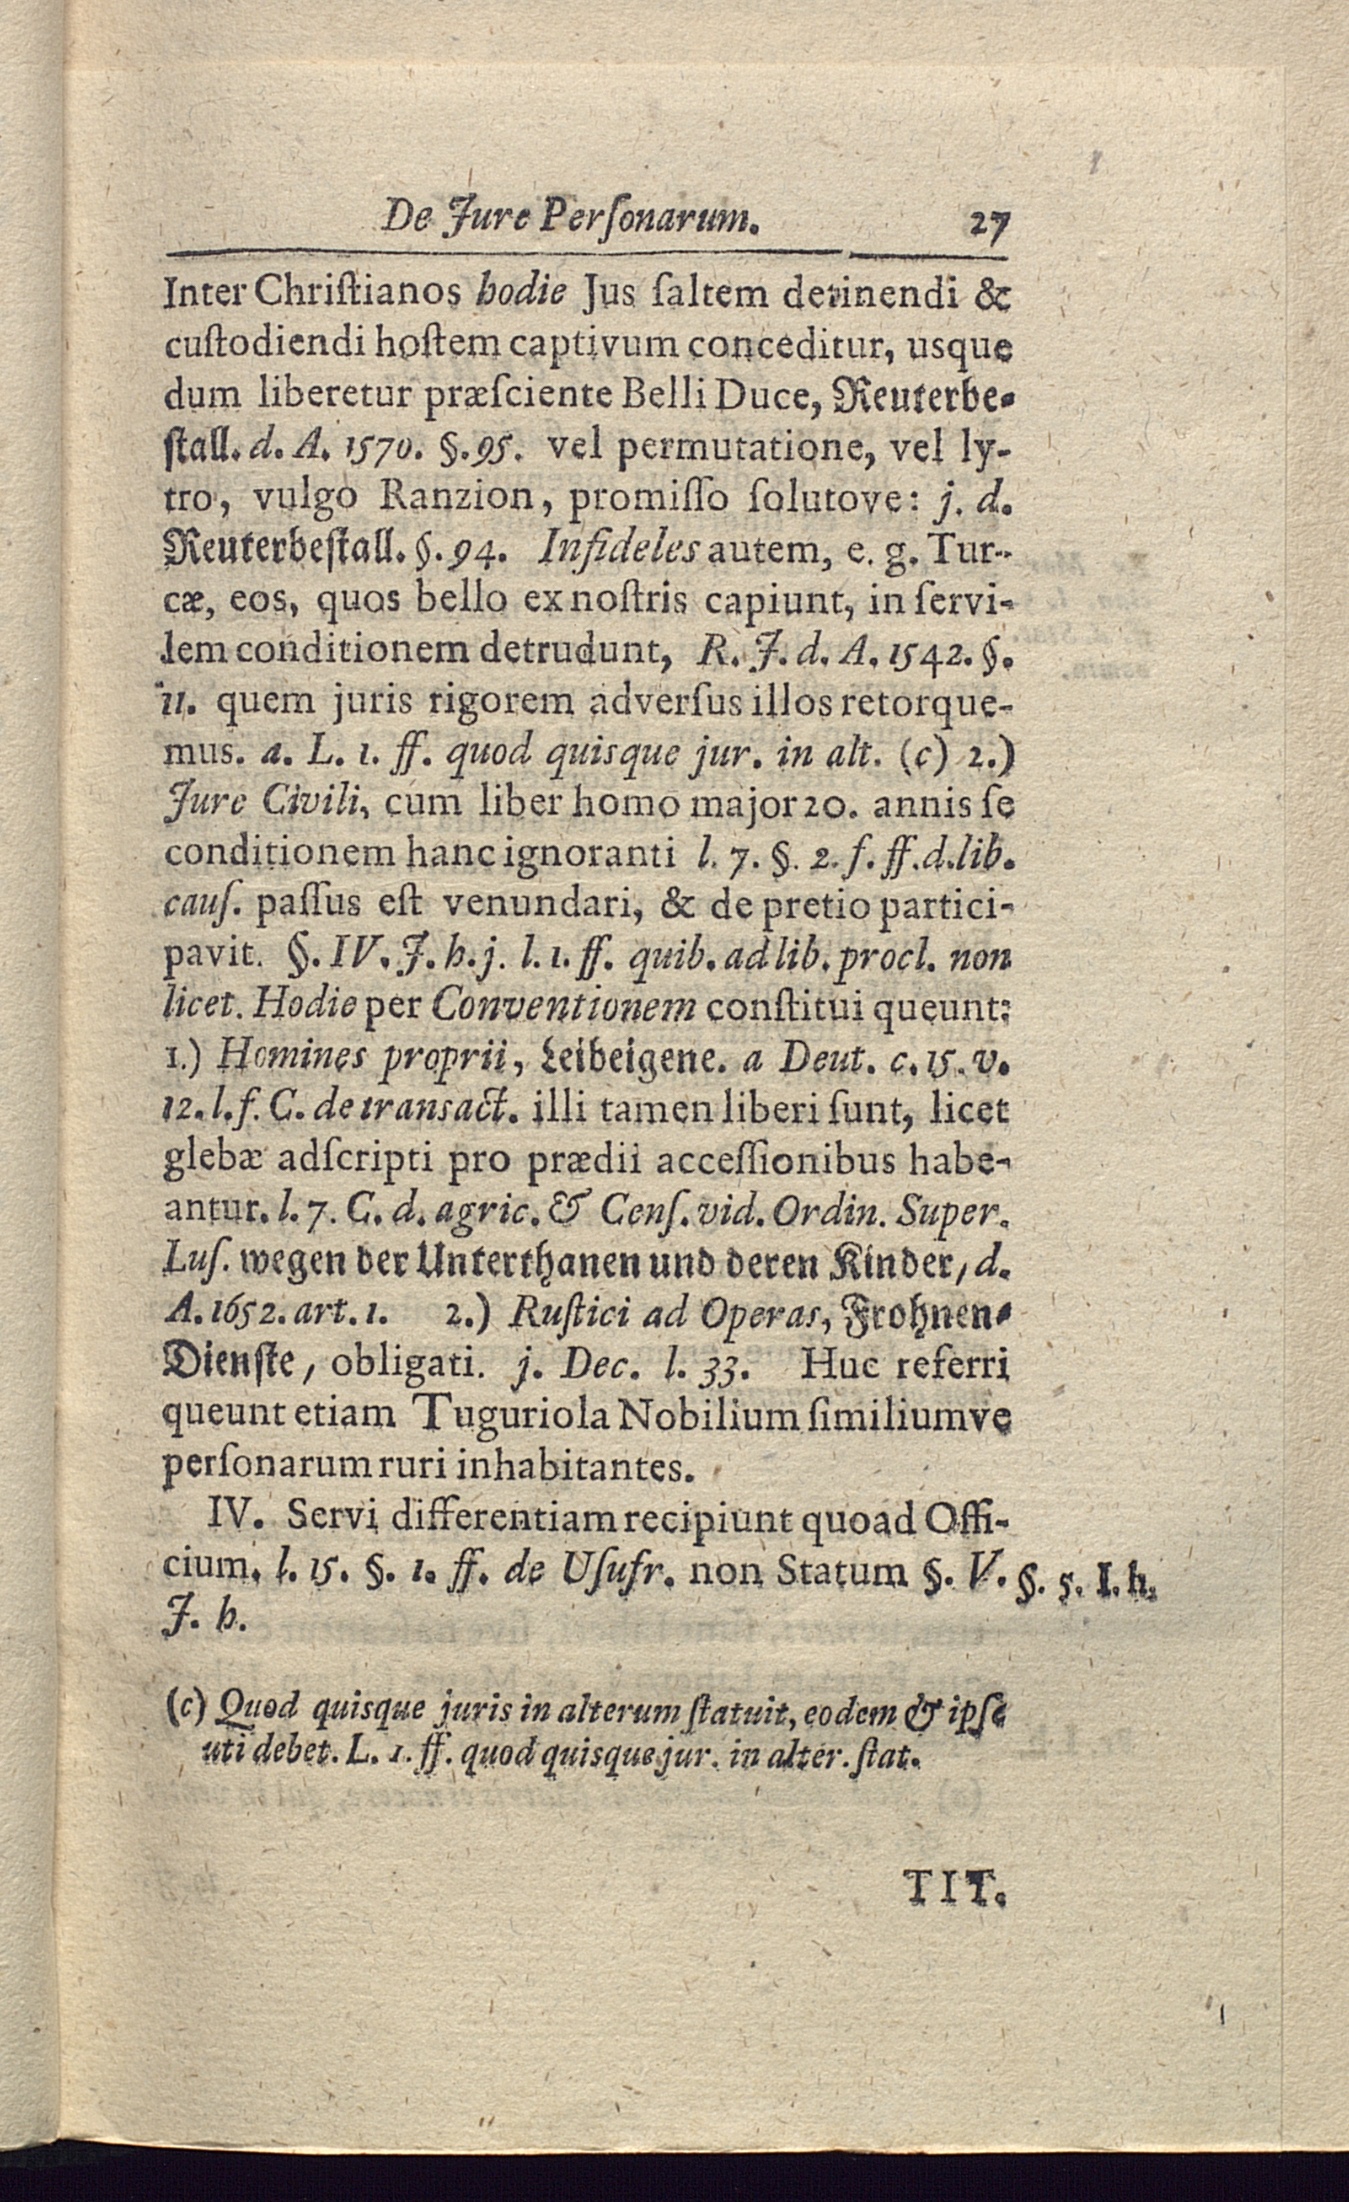 De Jure Perſonarum. 27
Inter Chriſtianos hodie Jus ſaltem detinendi &
cuſtodiendi hoſtem captivum conceditur, usque
dum liberetur præſciente Belli Duce, Reuterbe-
ſtall. d. A. 1570. §. 95. vel permutatione, vel ly-
tro, vulgo Ranzion, promiſſo ſolutove: j. d.
Reuterbeſtall. §. 94. Infideles autem, e. g. Tur-
cæ, eos, quos bello ex noſtris capiunt, in ſervi-
lem conditionem detrudunt, R. J. d. A. 1542. §.
11. quem juris rigorem adverſus illos retorque-
mus. a. L. 1. ff. quod quisque jur. in alt. (c) 2.)
Jure Civili, cum liber homo major 20. annis ſe
conditionem hanc ignoranti l. 7. §. 2. f. ff. d. lib.
cauſ. paſſus eſt venundari, & de pretio partici-
pavit. §. IV. J. h. j. l. 1. ff. quib. ad lib. procl. non
licet. Hodie per Conventionem conſtitui queunt:
1.) Homines proprii, Leibeigene. a Deut. c. 15. v.
12. l. f. C. de transact. illi tamen liberi ſunt, licet
glebæ adſcripti pro prædii acceſſionibus habe-
antur. l. 7. C. d. agric. & Cenſ. vid. Ordin. Super.
Luſ. wegen der Unterthanen und deren Kinder, d.
A. 1652. art. 1. 2.) Ruſtici ad Operas, Frohnen-
Dienſte, obligati. j. Dec. l. 33. Huc referri
queunt etiam Tuguriola Nobilium ſimiliumve
perſonarum ruri inhabitantes.
IV. Servi differentiam recipiunt quoad Offi-
cium. l. 15. §. 1. ff. de Uſufr. non Statum §. V. §. 5. I. h.
J. h.
(c) Quod quisque juris in alterum ſtatuit, eodem & ipſe
uti debet. L. 1. ff. quod quisque jur. in alter. ſtat.
TIT.